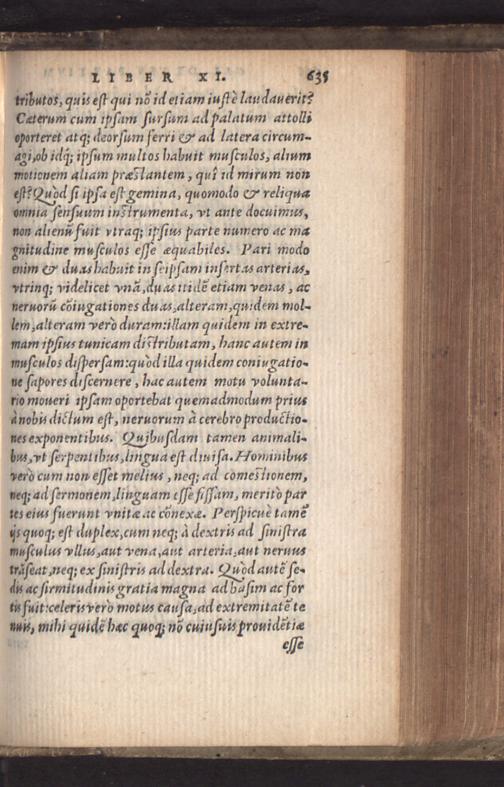 LIBER XI. 635
tributos, quis est qui nõ id etiam iustè laudauerit?
Cæterum cum ipsam sursum ad palatum attolli
oporteret atq; deorsum ferri & ad latera circum-
agi, ob idq; ipsum multos habuit musculos, alium
motionem aliam præstantem, quî id mirum non
est? Quòd si ipsa est gemina, quomodo & reliqua
omnia sensuum instrumenta, vt ante docuimus,
non alienũ fuit vtraq; ipsius parte numero ac ma
gnitudine musculos esse æquabiles. Pari modo
enim & duas habuit in seipsam insertas arterias,
vtrinq; videlicet vnã, duas itidẽ etiam venas, ac
neruorũ cõiugationes duas, alteram, quidem mol-
lem, alteram verò duram: illam quidem in extre-
mam ipsius tunicam distributam, hanc autem in
musculos dispersam: quòd illa quidem coniugatio-
ne sapores discernere, hac autem motu volunta-
rio moueri ipsam oportebat quemadmodum prius
à nobis dictum est, neruorum à cerebro productio-
nes exponentibus. Quibusdam tamen animali-
bus, vt serpentibus, lingua est diuisa. Hominibus
verò cum non esset melius, neq; ad comestionem,
neq; ad sermonem, linguam esse fissam, meritò par
tes eius fuerunt vnitæ ac cõnexæ. Perspicuè tamẽ
ijs quoq; est duplex, cum neq; à dextris ad sinistra
musculus vllus, aut vena, aut arteria, aut neruus
trãseat, neq; ex sinistris ad dextra. Quòd autẽ se-
dis ac firmitudinis gratia magna ad basim ac for
tis fuit: celeris verò motus causa, ad extremitatẽ te
nuis, mihi quidẽ hæc quoq; nõ cuiusuis prouidẽtiæ
esse